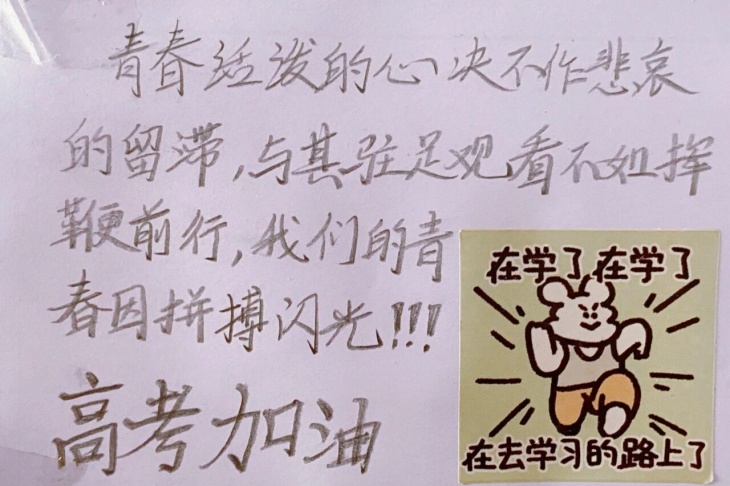 青春活泼的心决不作悲哀
的留滞,与其驻足观看不如挥
鞭前行,我们的青
春因拼搏闪光!!!
高考加油
在学了在学了
在去学习的路上了